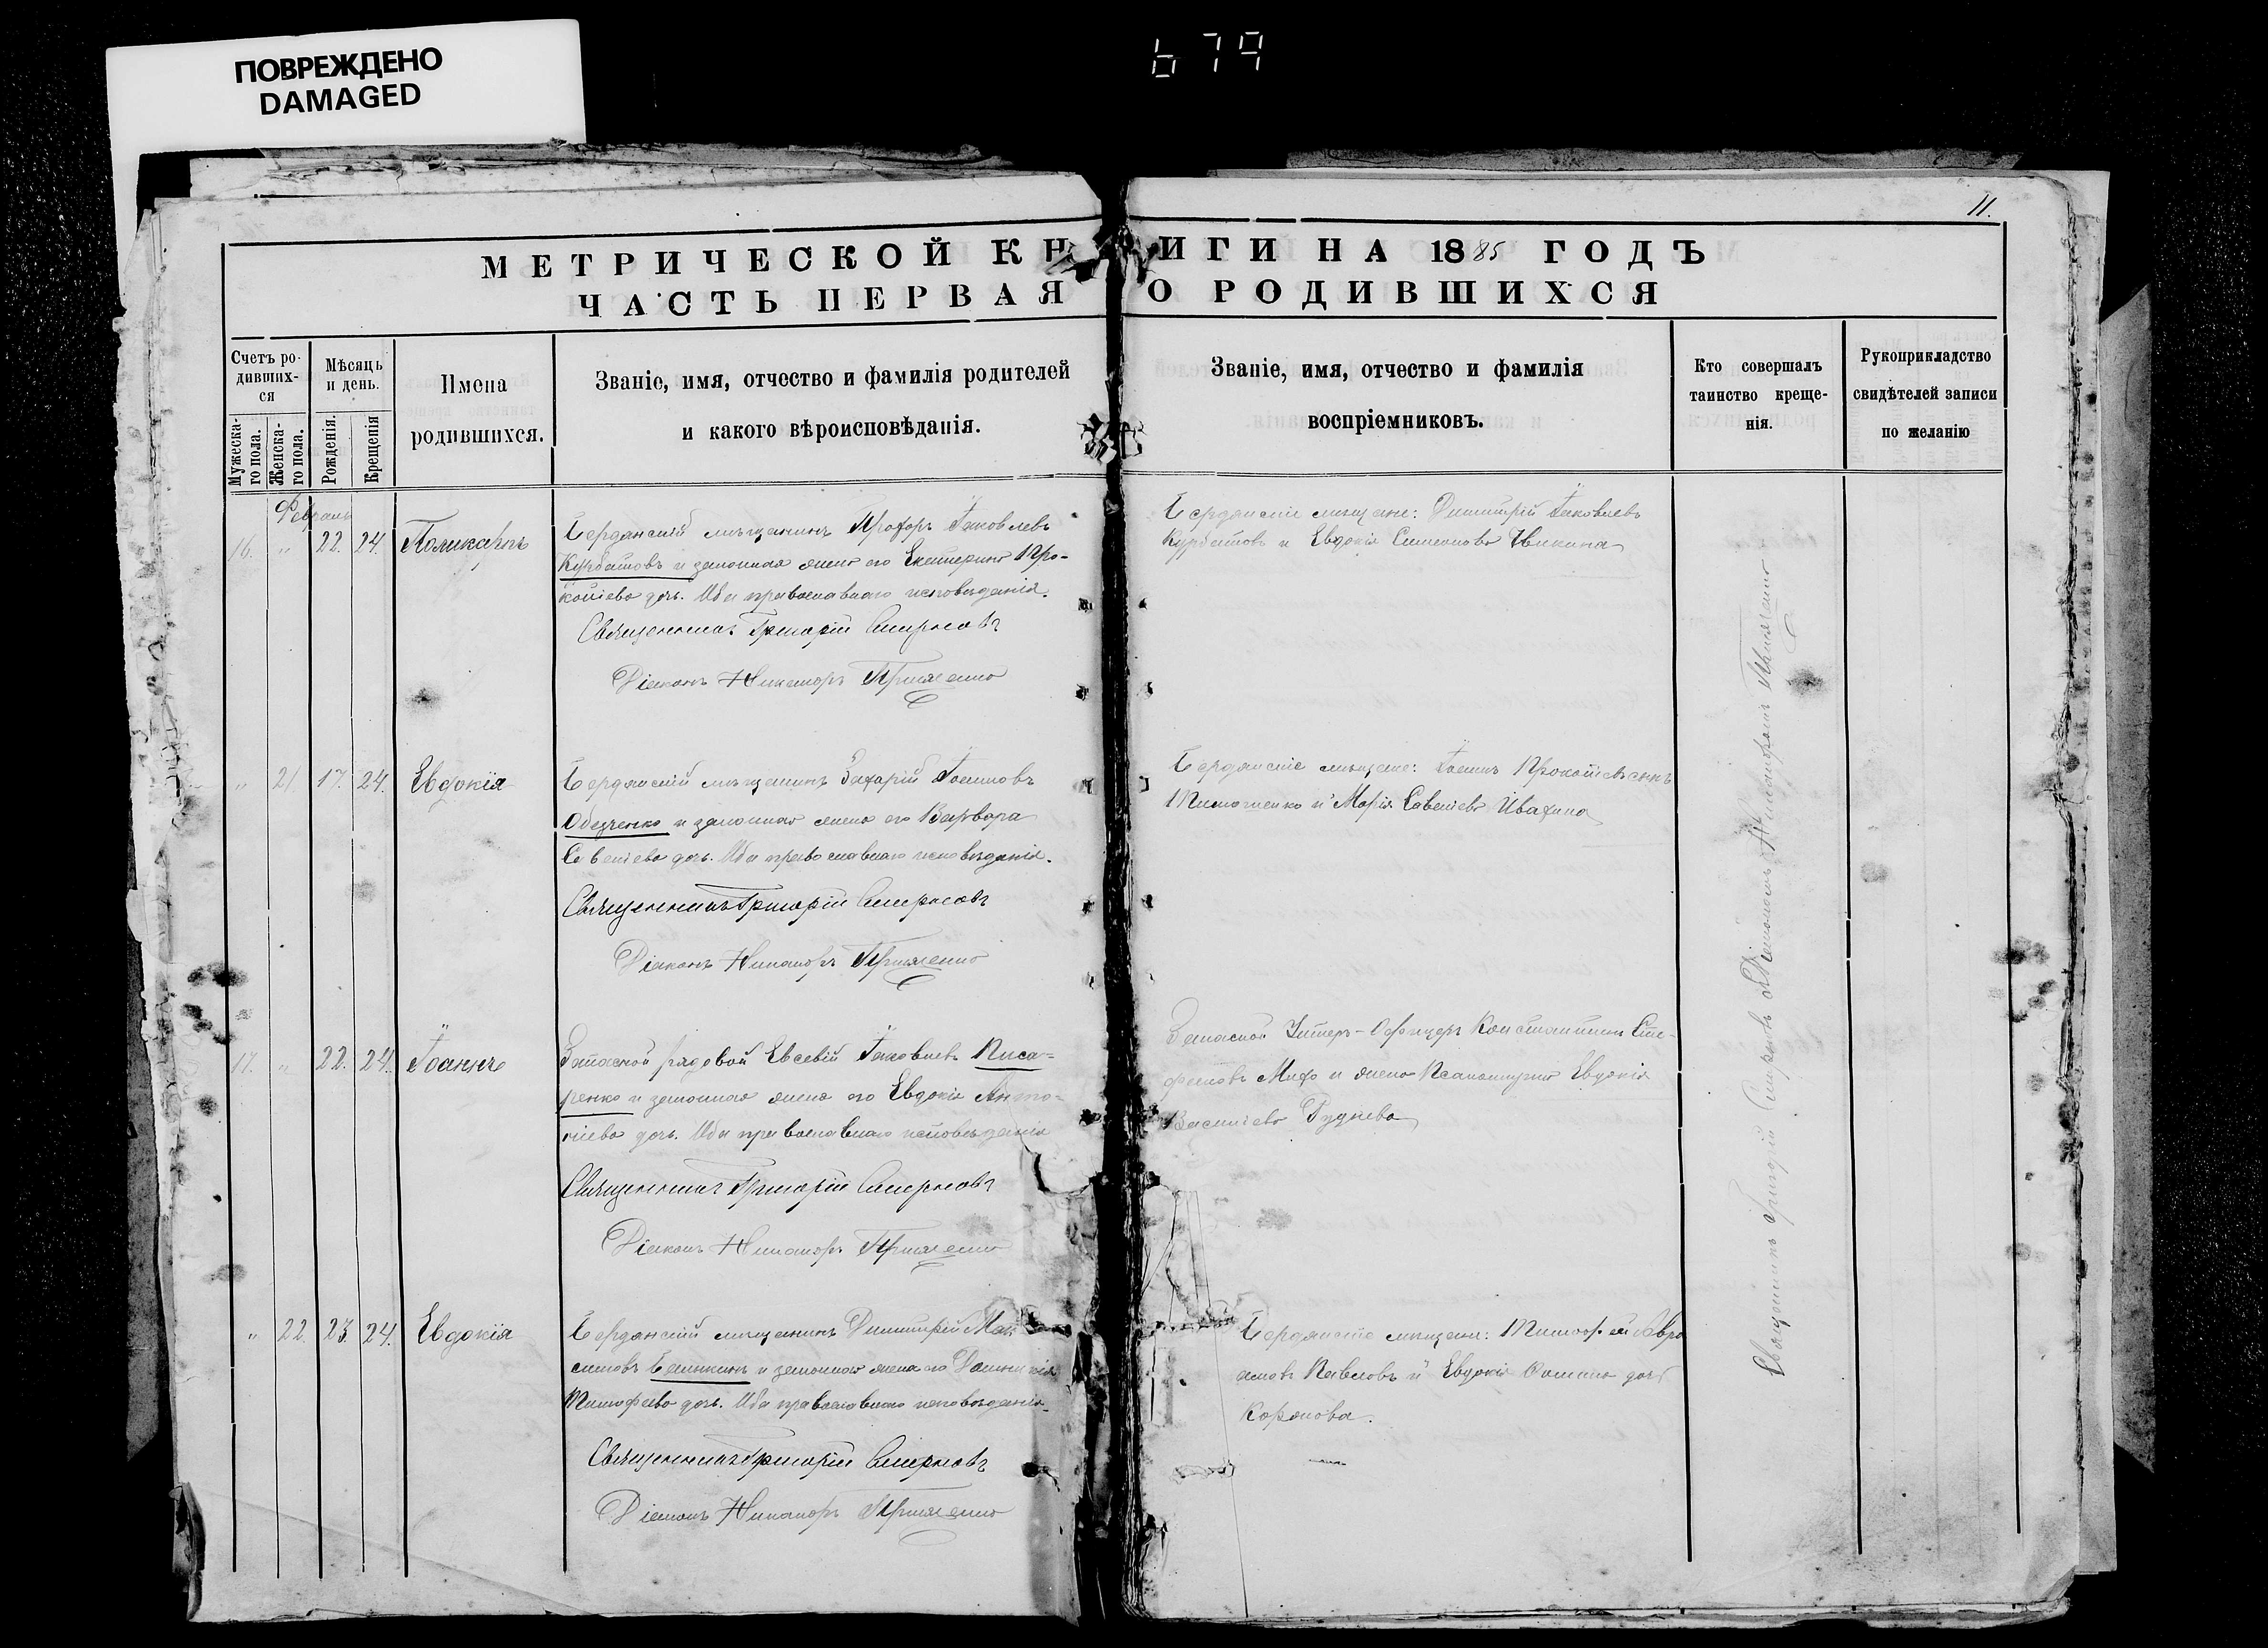 ПОВРЕЖДЕНО
DAMAGED
679
11.
МЕТРИЧЕСКОЙ КНИГИ НА 1885 ГОДЪ
ЧАСТЬ ПЕРВАЯ О РОДИВШИХСЯ
Счетъ ро-
дивших-
ся
Мужеска-
го пола.
Женска-
го пола.
Мѣсяцъ
и день.
Рожденія.
Крещенія
Имена
родившихся.
Званіе, имя, отчество и фамилія родителей
и какого вѣроисповѣданія.
Званіе, имя, отчество и фамилія
воспріемниковъ.
Кто совершалъ
таинство креще-
нія.
Рукоприкладство
свидѣтелей записи
по желанію
Февраль
16. " 22. 24. Поликарпъ
Бердянскій мѣщанинъ Прохоръ Іаковлевъ
Курбатовъ и законная жена его Екатерина Про-
копіева дочь. Оба православнаго исповѣданія.
Священникъ Григорій Смирновъ
Діаконъ Никаноръ
Бердянскіе мѣщане: Димитрій Іаковлевъ
Курбатовъ и Евдокія Симеонова
" 21. 17. 24. Евдокія
Бердянскій мѣщанинъ Захарій Іоанновъ
и законная жена его Варвара
Савеліева дочь. Оба православнаго исповѣданія.
Священникъ Григорій Смирновъ
Діаконъ Никаноръ
Бердянскіе мѣщане: Іоаннъ Прокопіевъ сынъ
Тимошенко и Марія Савеліева Ивахина
17. " 22. 24. Іоаннъ
Запасной рядовой Евсевій Іаковлевъ Писа-
ренко и законная жена его Евдокія Анто-
ніева дочь. Оба православнаго исповѣданія
Священникъ Григорій Смирновъ
Діаконъ Никаноръ
Запасной Унтеръ-Офицеръ Константинъ Сте-
фановъ и жена Евдокія
Василіева Руднева
" 22. 23. 24. Евдокія
Бердянскій мѣщанинъ Димитрій Мак
симовъ и законная жена его
Тимофеева дочь. Оба православнаго исповѣданія.
Священникъ Григорій Смирновъ
Діаконъ Никаноръ
Бердянскіе мѣщане: Тимофей Авра
амовъ Павловъ и Евдокія дочь
Священникъ Григорій Смирновъ съ Діакономъ Никаноромъ